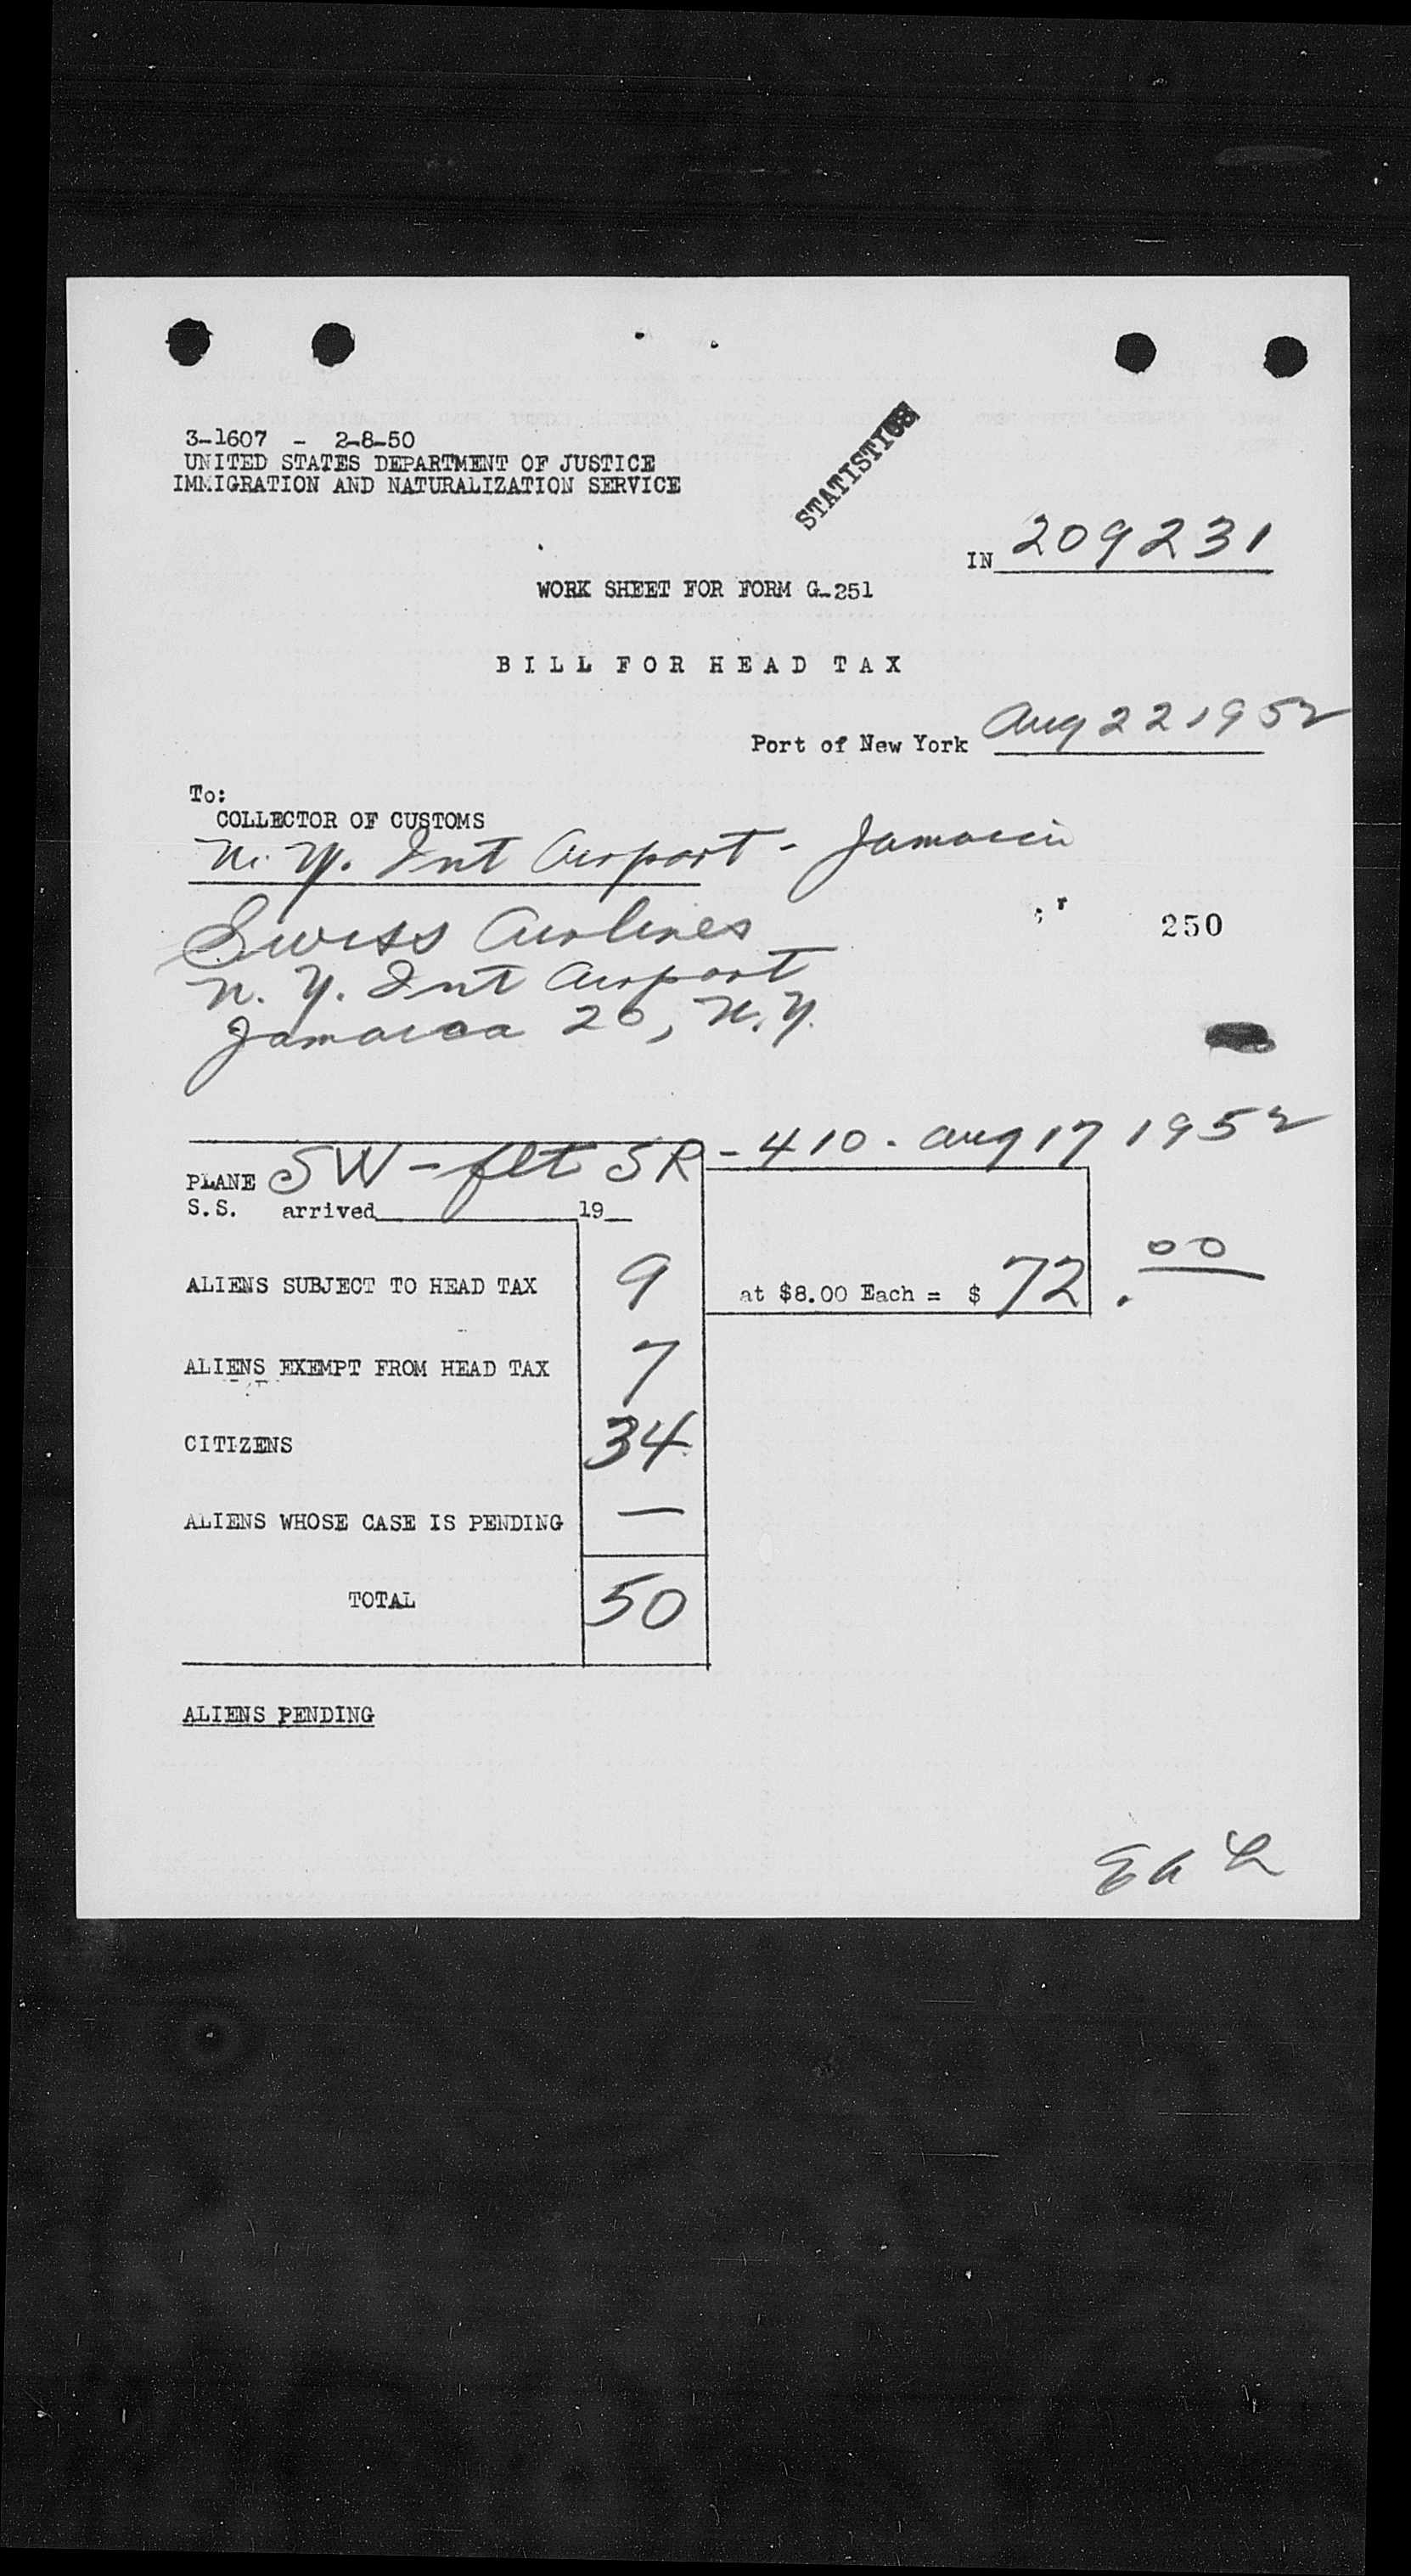 3-1607 - 2-8-50
UNITED STATES DEPARTMENT OF JUSTICE
IMMIGRATION AND NATURALIZATION SERVICE
STATISTICS
IN 209231
WORK SHEET FOR FORM G-251
BILL FOR HEAD TAX
Port of New York Aug 22 1952
To:
COLLECTOR OF CUSTOMS
N. Y. Int Airport - Jamaica
Swiss Airlines
250
N. Y. Int Airport
Jamaica 20, N.Y.
PLANE SW - flt SR - 410 - Aug 17 1952
S.S. arrived 19
ALIENS SUBJECT TO HEAD TAX 9 at $8.00 Each = $ 72.00
ALIENS EXEMPT FROM HEAD TAX 7
CITIZENS 34
ALIENS WHOSE CASE IS PENDING —
TOTAL 50
ALIENS PENDING